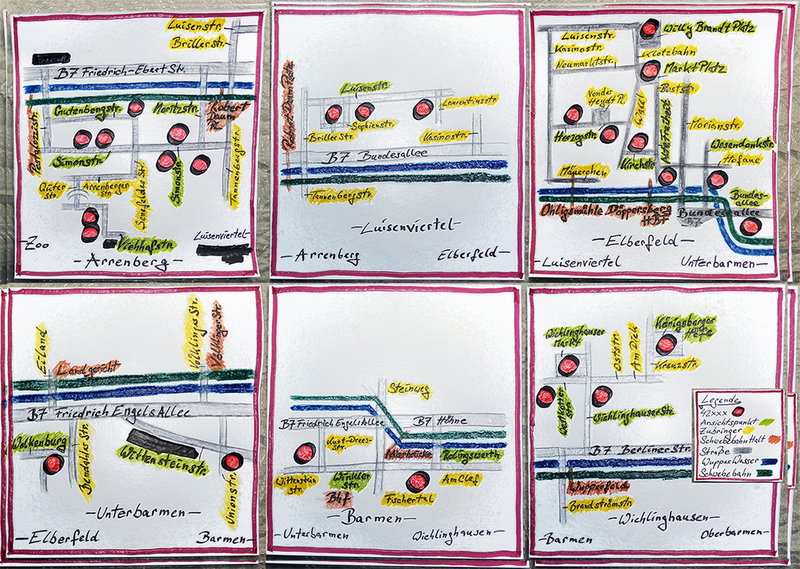 Luisenstr.
Brillerstr.
B7 Friedrich-Ebert Str.
Gutenbergstr.
Moritzstr.
Robert
Daum
Pl.
Pestalozzistr.
Simonstr.
Simonstr.
Tannenbergstr.
Senefelderstr.
Arrenberger
Str.
Viehhofstr.
Zoo
Luisenviertel
-Arrenberg-
Robert Daum Platz
Luisenstr.
Laurentiusstr.
Brillerstr.
Sophienstr.
Kasinostr.
B7 Bundesallee
Tannenbergstr.
-Luisenviertel-
Arrenberg
Elberfeld
Luisenstr.
Kasinostr.
Neumarktstr.
Willy Brandt Platz
Klotzbahn
Markt Platz
Von der
Heydt Pl.
Herzogstr.
Kirchstr.
Morianstr.
Wesendonkstr.
Hofaue
Mäuerchen
Bundes-
allee
Ohligsmühle
Döppersberg
Hbf
Bundesallee
B7
-Elberfeld-
Luisenviertel
Unterbarmen
Eiland
Landgericht
Völklinger Str.
Völklinger Str.
B7 Friedrich Engels Allee
Wolkenburg
Bendahler Str.
Wittensteinstr.
Unionstr.
-Unterbarmen-
-Elberfeld
Barmen-
Steinweg
B7 Friedrich Engels Allee
B7 Höhne
Kurt-Drees-
Str.
Alterbrücke
Rolingswerth
Wittenstein
str.
Winklerstr.
Bhf
Am Clef
Fischertal
-Barmen-
-Unterbarmen
Wichlinghausen-
Wichlinghauser
Markt
Königsberger
Höfe
Oststr.
Am Diek
Kreuzstr.
Westkotterstr.
Wichlinghauser Str.
B7 Berliner Str.
Wupperfeld
Brändströmstr.
-Wichlinghausen-
-Barmen
Oberbarmen-
Legende
42xxx
Ansichtspunkt
Zubringer
Schwebebahn Halt
Straße
Wupper Wasser
Schwebebahn